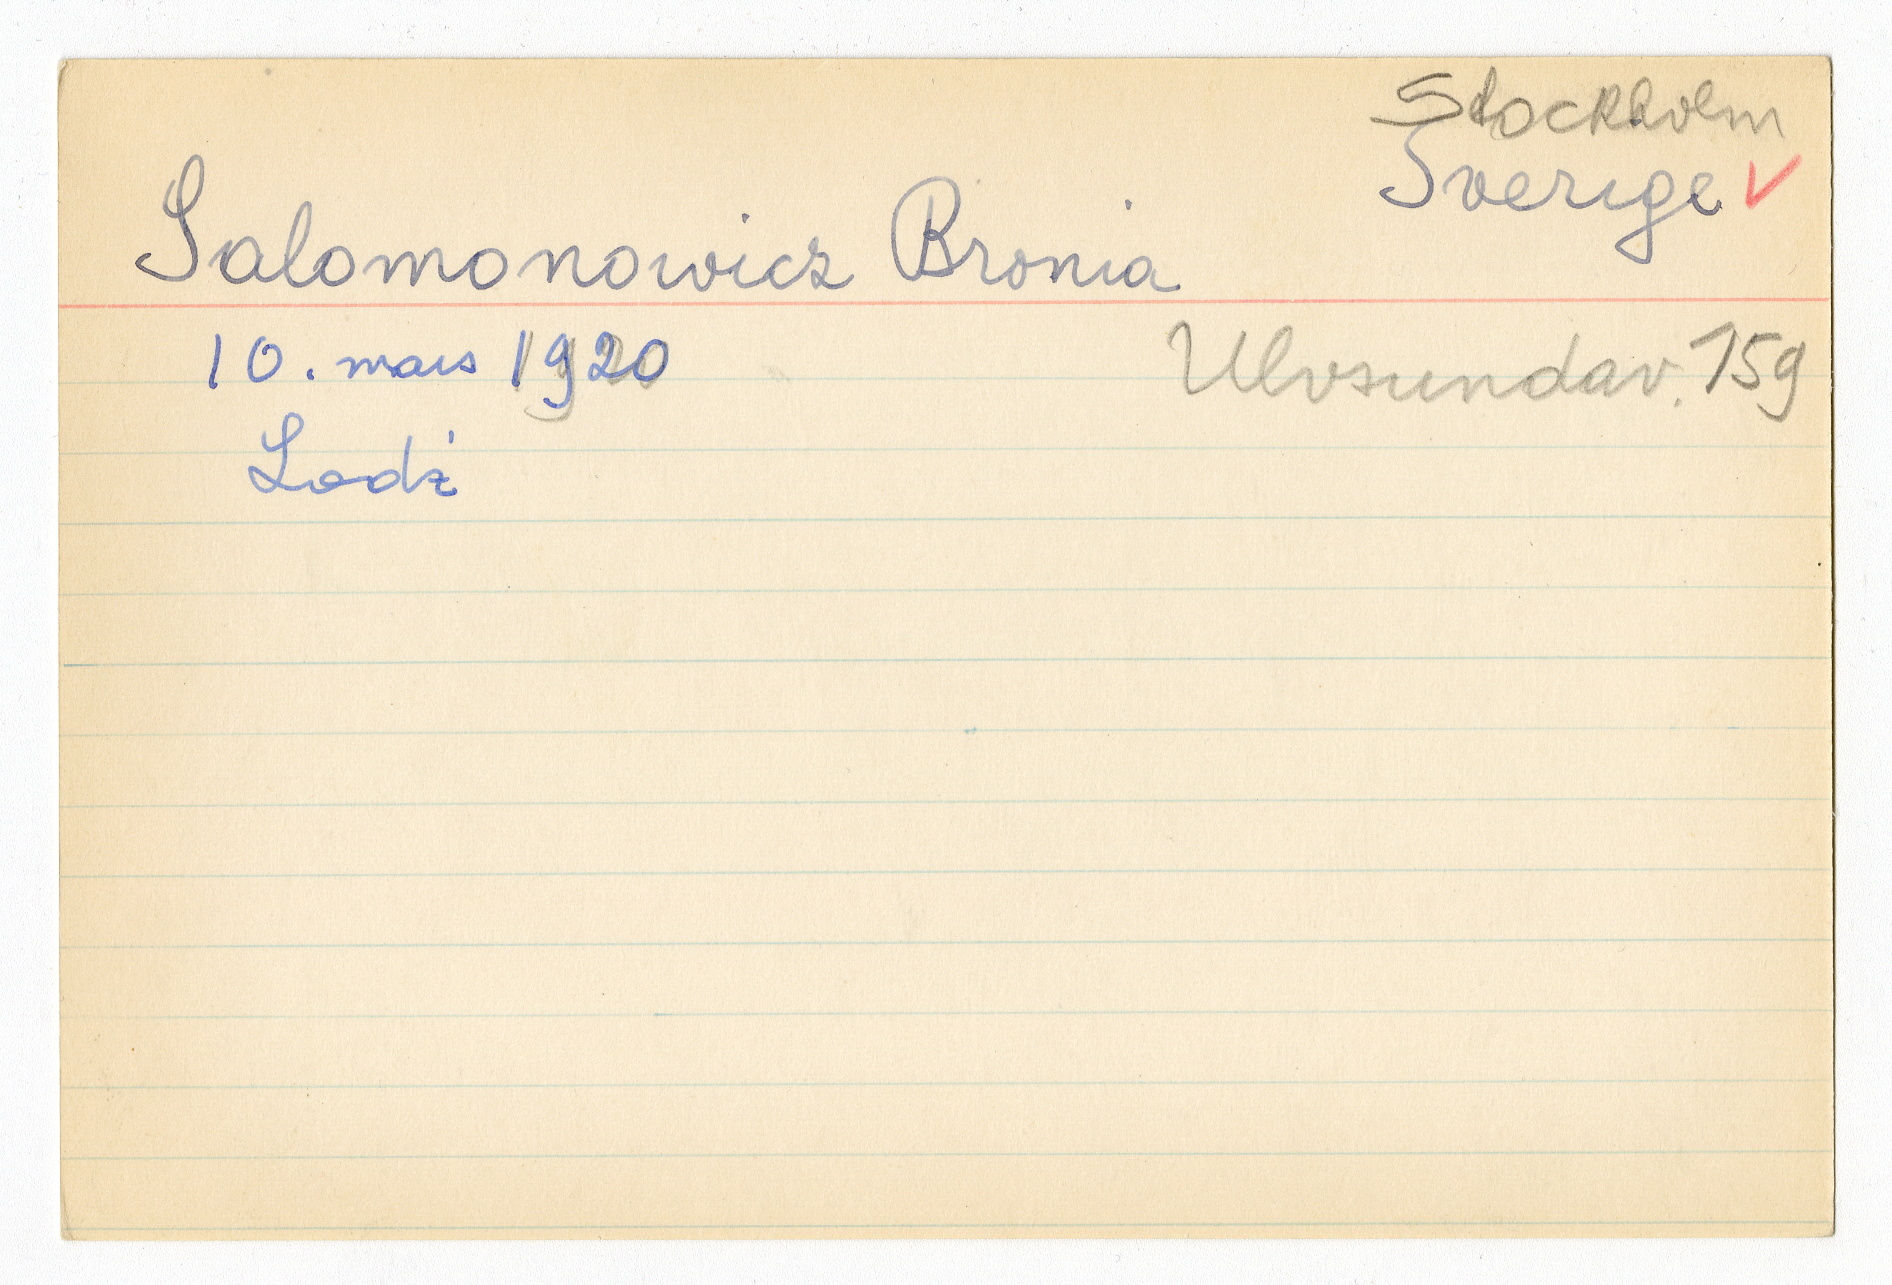 Stockholm
Sverige
Salomonowicz Bronia
10. mars 1920
Ulvsundav. 159
Lodż